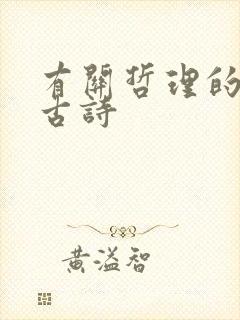 有關哲理的
古詩
黃溢智